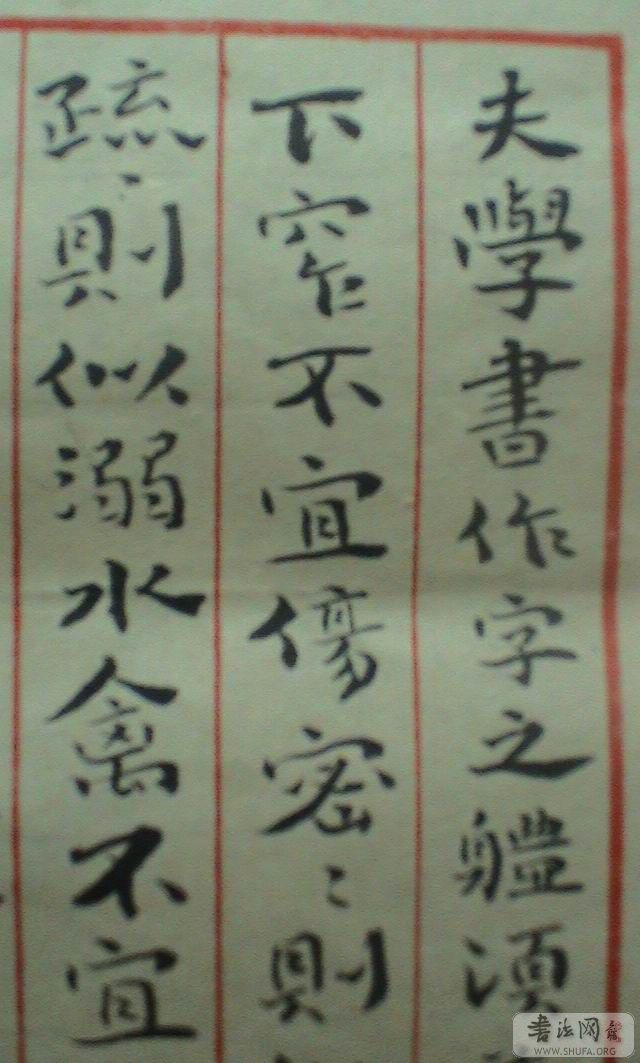 夫學書作字之軆湏
下窄不宜傷密〻則
疏〻則似溺水禽不宜
书法网
WWW.SHUFA.ORG